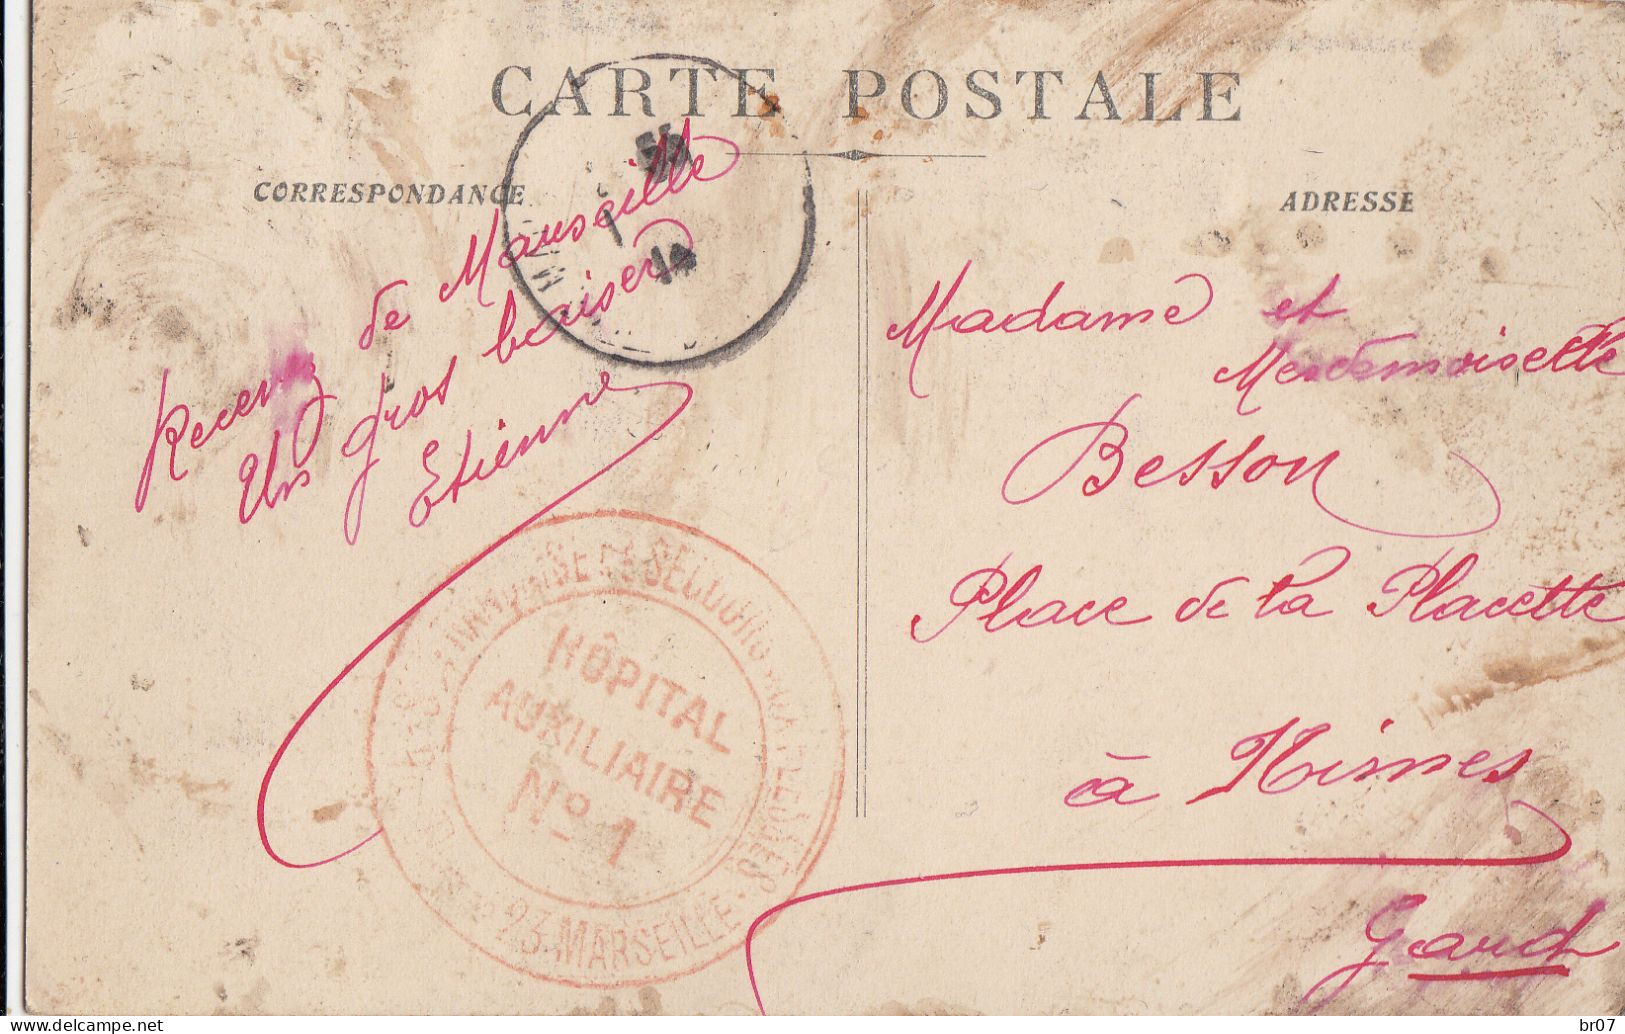 CARTE POSTALE
CORRESPONDANCE
ADRESSE
14
Recevez de Marseille
Un gros baiser
Etienne
Madame et
Mesdemoiselle
Besson
Place de la Placette
à Nimes
Gard
FRANÇAISE DE SECOURS AUX BLESSÉS
HÔPITAL
AUXILIAIRE
Nº 1
23 MARSEILLE
br07